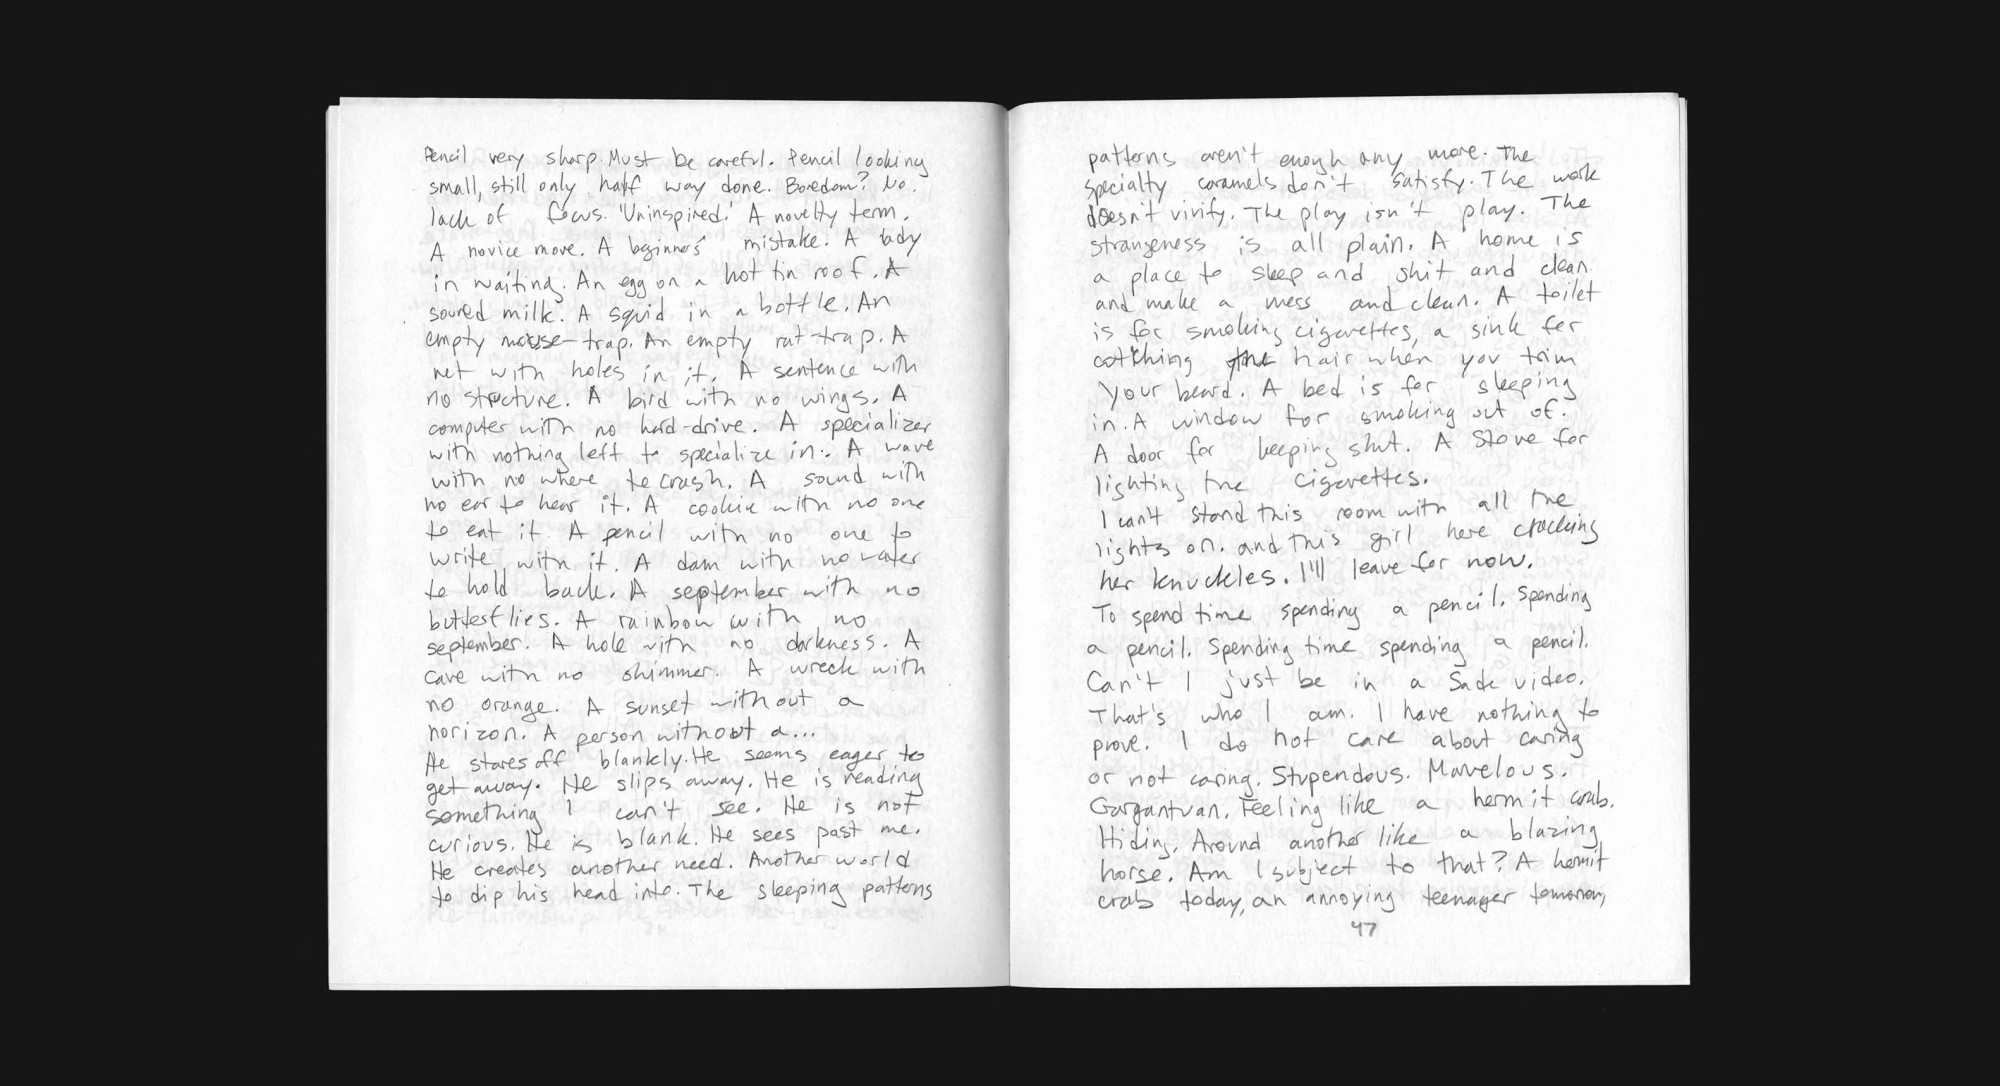 Pencil very sharp. Must be careful. Pencil looking
small, still only half way done. Boredom? No.
lack of focus. 'Uninspired.' A novelty term.
A novice move. A beginners' mistake. A lady
in waiting. An egg on a hot tin roof. A
soured milk. A squid in a bottle. An
empty mouse-trap. An empty rat-trap. A
net with holes in it. A sentence with
no structure. A bird with no wings. A
computer with no hard-drive. A specializer
with nothing left to specialize in. A wave
with no where to crash. A sound with
no ear to hear it. A cookie with no one
to eat it. A pencil with no one to
write with it. A dam with no water
to hold back. A september with no
butterflies. A rainbow with no
september. A hole with no darkness. A
cave with no shimmer. A wreck with
no orange. A sunset without a
horizon. A person without a...
He stares off blankly. He seems eager to
get away. He slips away. He is reading
something I can't see. He is not
curious. He is blank. He sees past me.
He creates another need. Another world
to dip his head into. The sleeping patterns
patterns aren't enough any more. The
specialty caramels don't satisfy. The work
doesn't vivify. The play isn't play. The
strangeness is all plain. A home is
a place to sleep and shit and clean
and make a mess and clean. A toilet
is for smoking cigarettes, a sink for
catching the hair when you trim
your beard. A bed is for sleeping
in. A window for smoking out of.
A door for keeping shut. A stove for
lighting the cigarettes.
I can't stand this room with all the
lights on. and this girl here cracking
her knuckles. I'll leave for now.
To spend time spending a pencil. Spending
a pencil. Spending time spending a pencil.
Can't I just be in a Sade video.
That's who I am. I have nothing to
prove. I do not care about caring
or not caring. Stupendous. Marvelous.
Gargantuan. Feeling like a hermit crab.
Hiding. Around another like a blazing
horse. Am I subject to that? A hermit
crab today, an annoying teenager tomorrow,
47